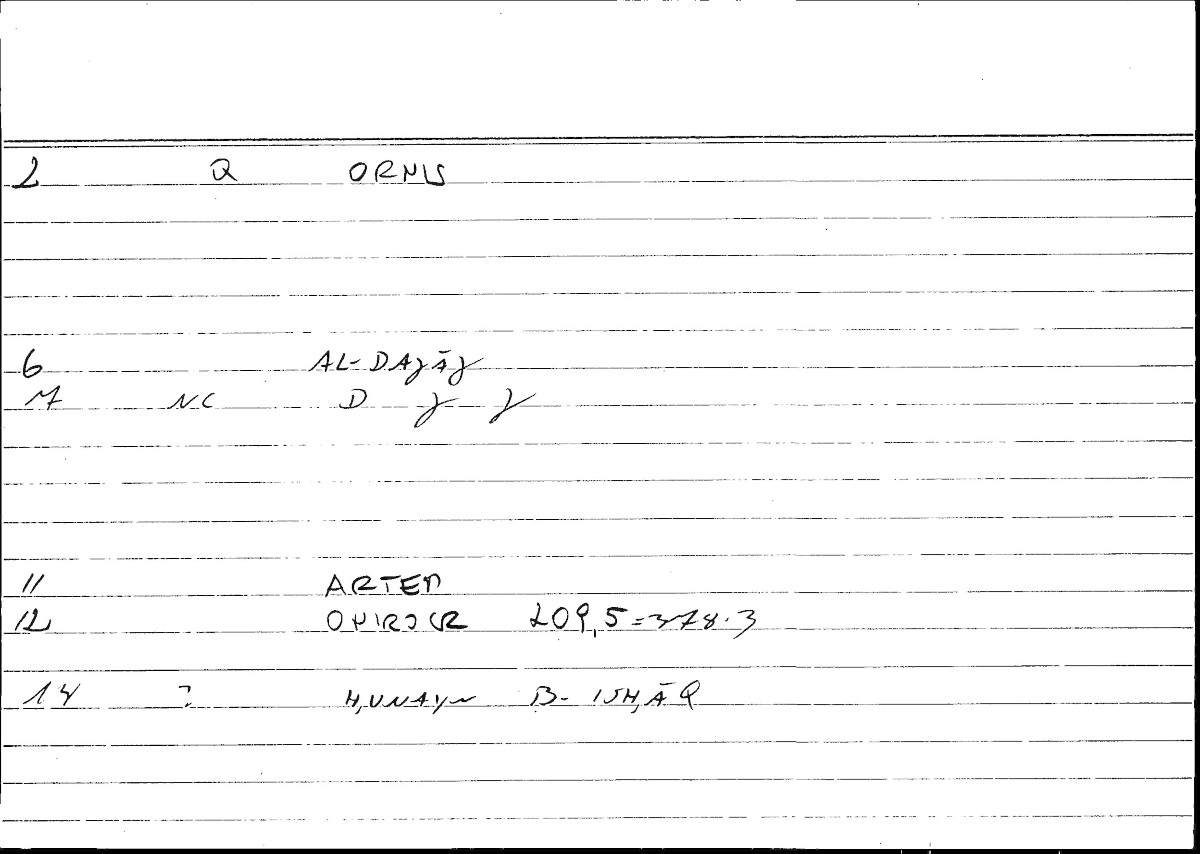 2 Q ORNIS
6 AL-DAJĀJ
7 NC D J J
11 ARTEM
12 ONIROCR 209,5=378.3
14 ? H,UNAYN B- ISH,ĀQ